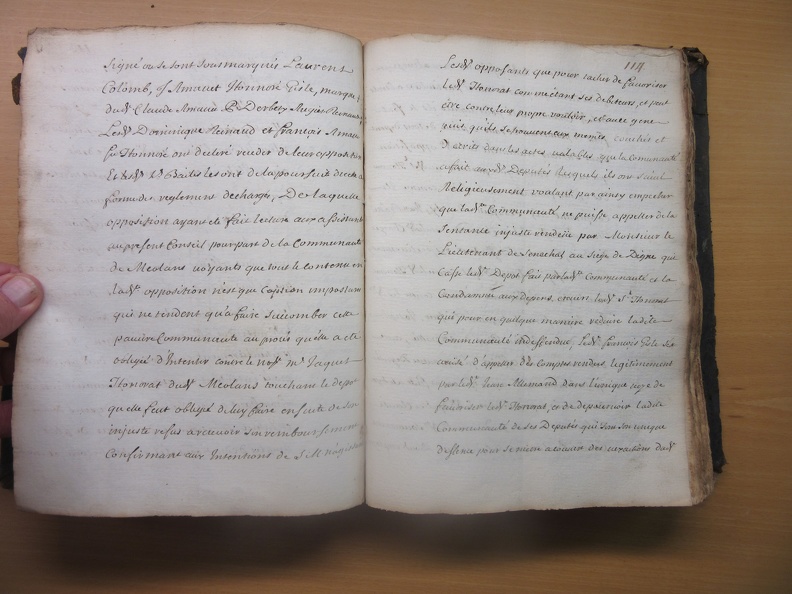 signé ou se sont sousmarqués Laurent
Colomb, J Arnaut Honnoré Gisle, marque
dud.t Claude Arnaud P. Derbezy Augier Reinaud
Lesd.t Dominique Reinaud et françois Arnaud
feu Honnoré ont declaré ceder de leur opposition
formedes reglemens decharge, De laquelle
opposition ayant eté fait lecture aux assistants
au present Conseil pour part de la Communauté
de Meolans voyants que tout le contenu en
lad.te opposition n'est que Caption imposture
qui ne tendent qu'à faire succomber cette
pauvre Communauté au procés qu'elle a eté
obligée d'Intenter contre le no.re m.e Jaques
Honorat dud.t Meolans touchant le depot
qu'elle feut obligée de luy faire en suite de son
injuste refus a recevoir son remboursement
Confirmant aux Intentions de S. M
114
Lesd.t opposants que pour tacher de favoriser
led.t Honorat com'estant ses debiteurs, et peut
être contre leur propre vouloir, et cause
qu'ils se trouvent aux memes
et decrits dans les actes valables que la Communauté
a fait auxd.t Deputés lesquels ils ont
Religieusement voulant par ainsy empecher
que lad.te Communauté ne puisse appeller de la
Sentance injuste rendüe par Monsieur le
Lieutenant de Senechal au Siege de Digne qui
Casse led.t Depot fait par lad.te Communauté et la
Condamne aux depens, envers led.t S.r Honorat
qui pour en quelque maniere reduire ladite
Communauté led.t françois Gisle s'est
avisé d'appeller des Comptes rendus legitimement
par led.t Jean Allemand dans l'unique vüe de
favoriser led.t Honorat, et de depourvoir ladite
Communauté de ses Deputés qui son son unique
deffence pour se mettre a couvert des vexations dud.t